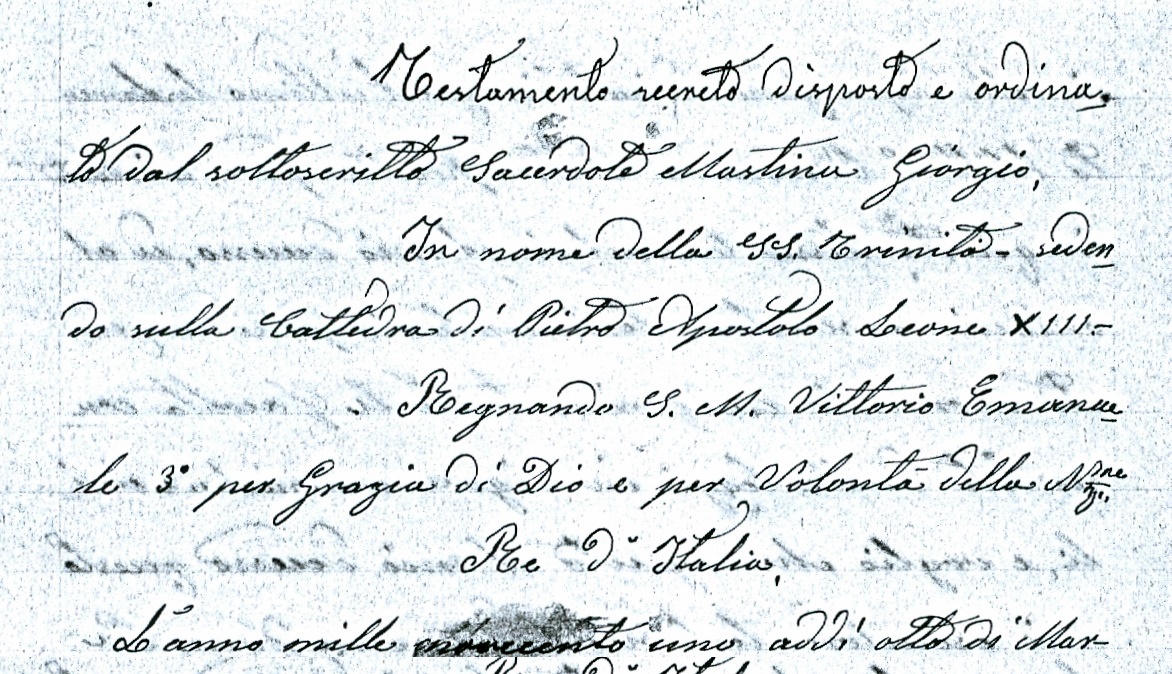 Testamento secreto disposto e ordina-
to dal sottoscritto Sacerdote Mastino Giorgio,
In nome della SS. Trinità - seden
do sulla Cattedra di Pietro Apostolo Leone XIII-
Regnando S. M. Vittorio Emanue
le 3° per Grazia di Dio e per Volontà della Nne
Re d'Italia,
L'anno mille novecento uno addì otto di Mar-